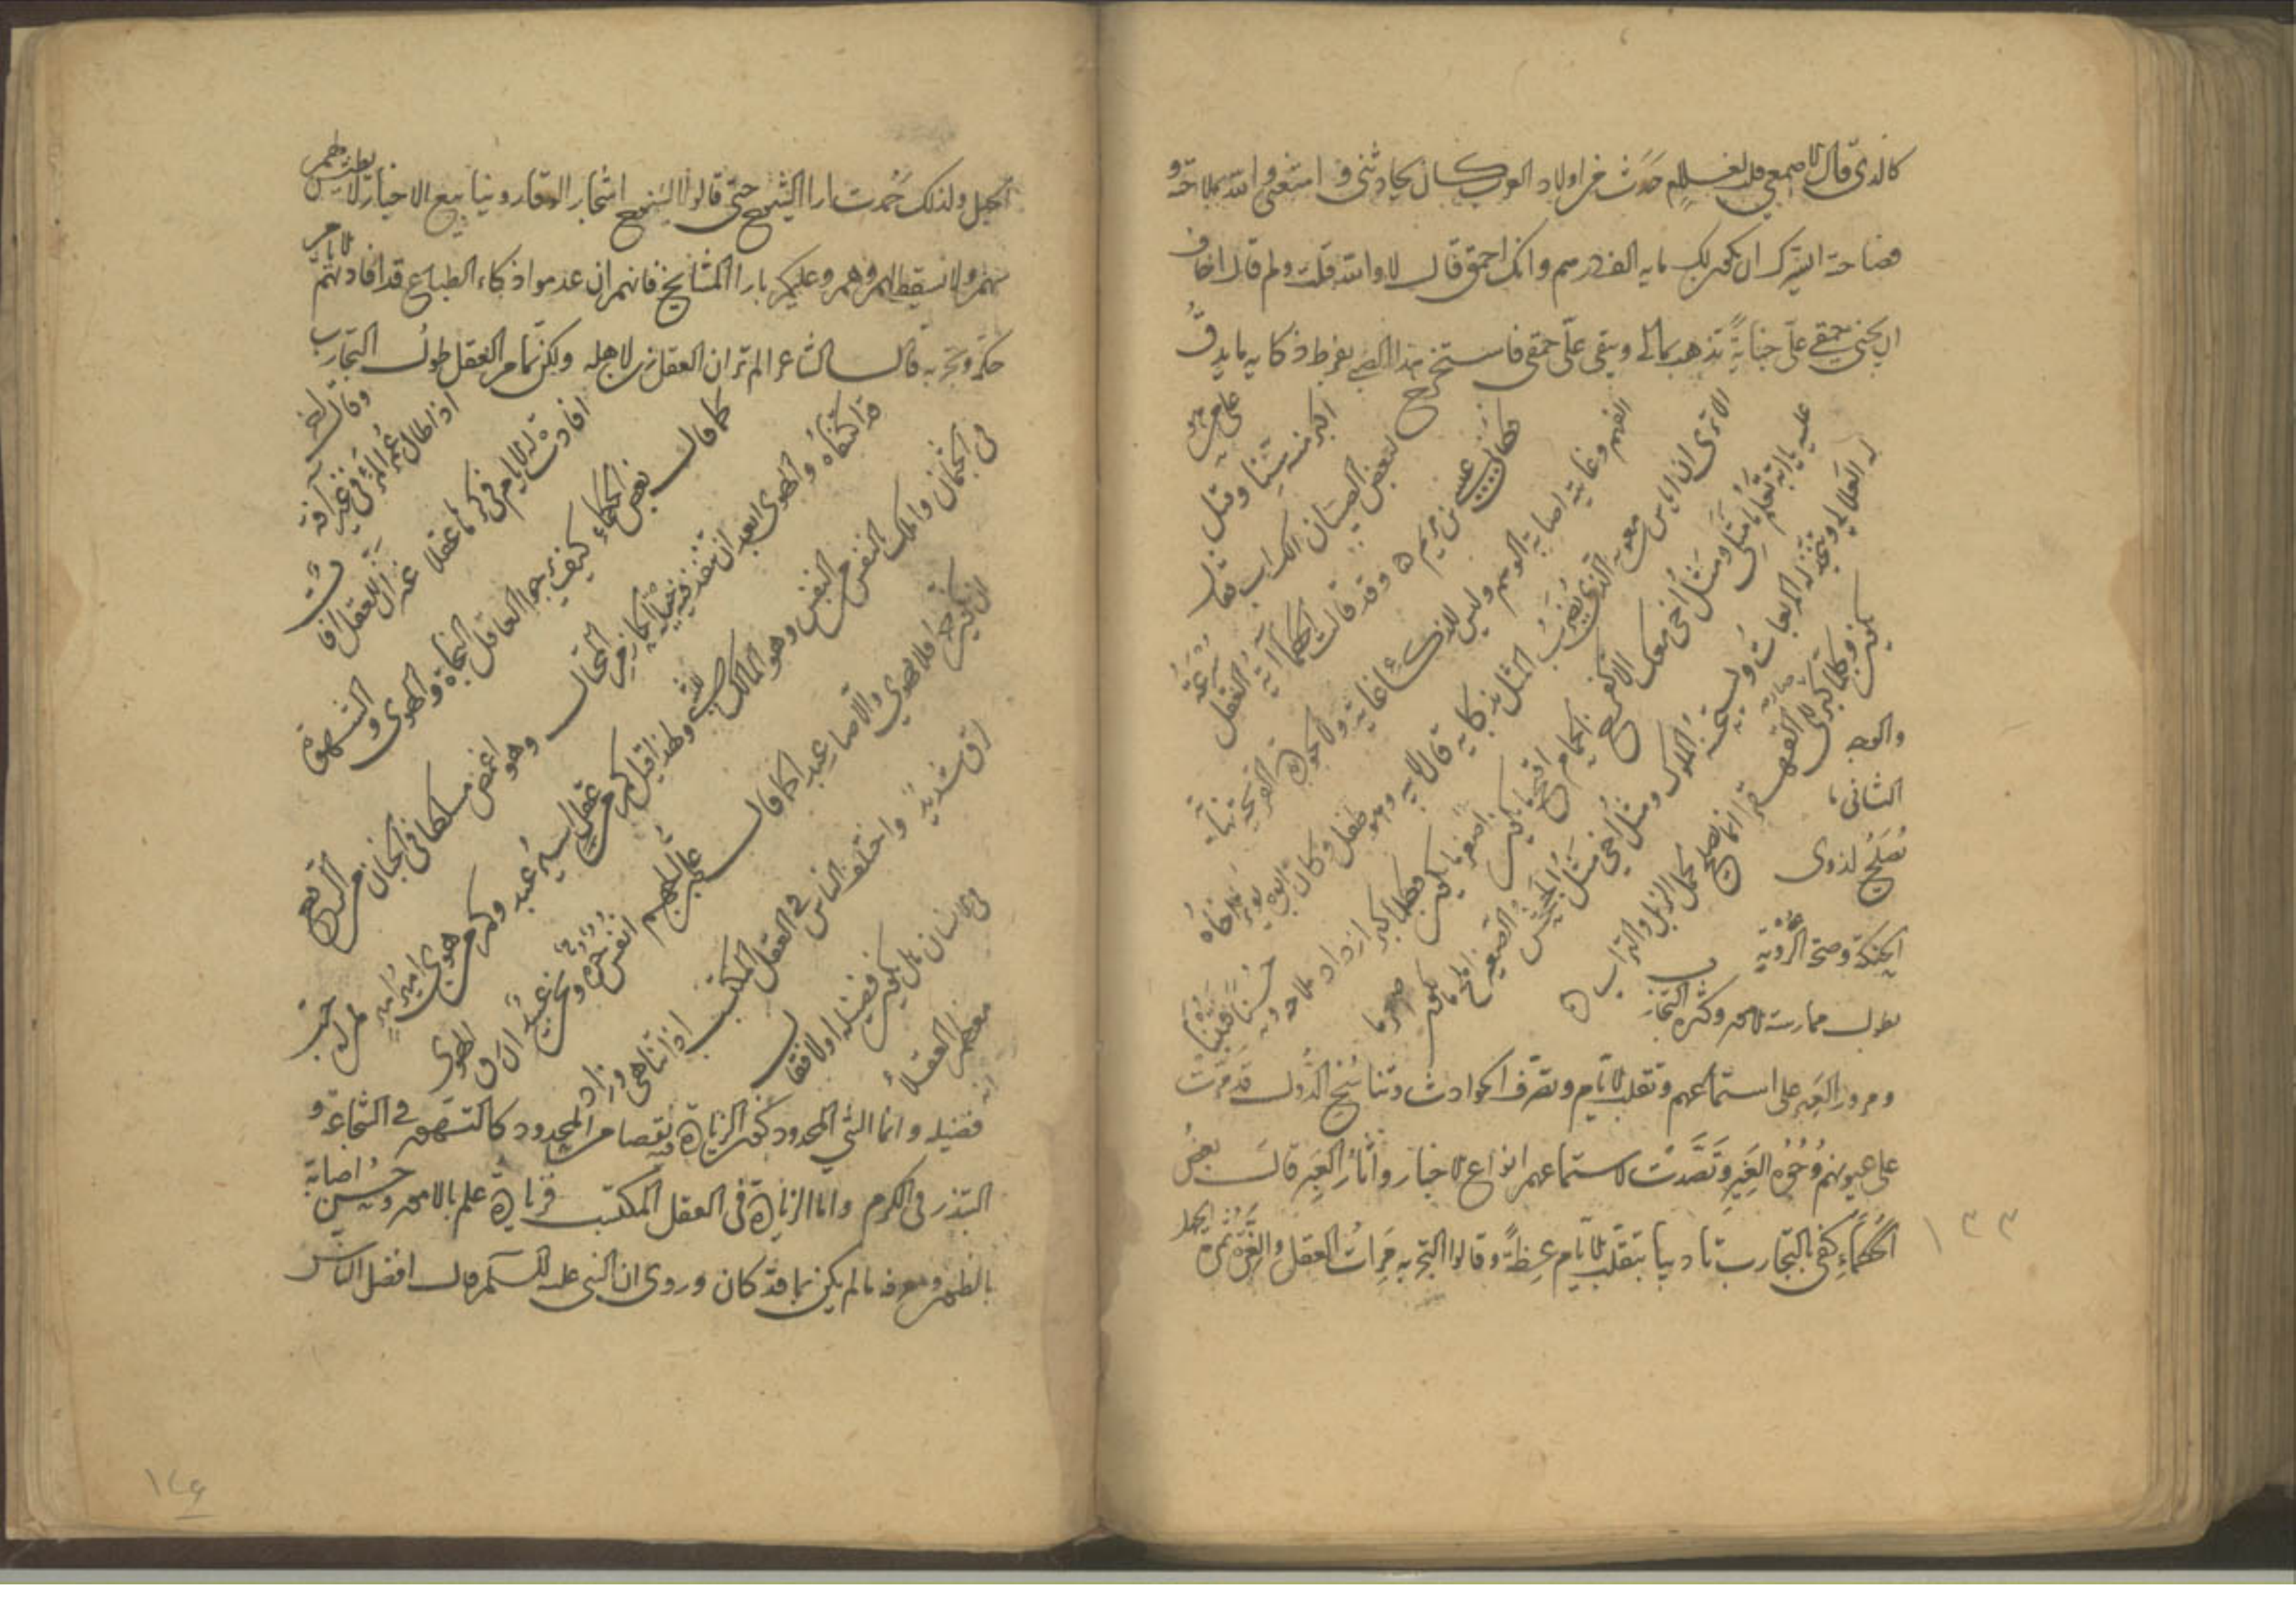 كالذي قال الاصمعي قلت لغلام حدث من اولاد العرب كان يحادثني فامتعني والله بملاحة و
فصاحة ايسرك ان يكون لك مايه الف درهم وانك احمق قال لا والله قلت ولم قال اخاف
ان يجني حمقي عليّ جنايةً تذهب بمالي ويبقى عليّ حمقي فاستخرج هذا الصبي بفرط ذكايه ما يدقّ
على من هو
اكبر منه سِنّا وقيل
لبعض الصبيان
فقال عيسى بن مريم ٥ وقد قالت الحكما آية العقل
سُرعة
الفهم وغايته اصابة الوهم وليس للذكاء غاية ولا لجودة القريحة نهاية
الا ترى ان اياس بن معوية الذي يُضرَبُ المثل بذكايه قال لابيه وهو طفل وكان ابوه يوثر اخاه
عليه يا ابه تعلم ما مَثَلي ومَثَلُ اخي معك الا كفرخ الحمام اقبح ما يكون اصغر ما يكون فكلما كبر ازداد ملاحة و حُسنًا فتُبنا
له العلالي وتتخذ له المربعات ويستحسنه الملوك ومثل اخي مثل الجحش الصغير املح ما يكون صغر ما
يكون وكلما كبر صار الى القهقرا انما يصلح لحمل الزبل والتراب ٥
والوجه
الثاني،
تُصلح لذوي
الحنكة وصحة الرُويّة
بطول ممارسة الامور وكثرة التجارب
ومرور العِبَر على استماعهم وتقلب الايام وتصرّف الحوادث وتناسخ الدُول قد مرّت
على عيونهم وُجُوه الغِيَر وتَصَدّت لاستماعهم انواع الاخبار واثار العِبَر قالَ بعضُ
الحُكمَاء كفى بالتجارب تاديبا بتقلّب الايام عِظةً وقالوا التجربه مرآت العقل والغِرّة ثمرة الجهل
١٣٣
الجهل ولذلك حُمدت ارا الشيوخ حتى قالوا الشيوخ اشجار الوقار وينابيع الاخبار لا يطيش لهم
سهم ولا يسقط لهم وهم وعليكم بارا المشايخ فانهم ان عدموا ذكاء الطباع قد افادتهم الايام
حكمةً وتجربة قال الشاعر الم تر ان العقل زين لاهله ولكن تمام العقل طول التجارب
وقال اخر
اذا طال عُمر المرء في غير آفة
افادت له الايام في كرها عقلا
كما قال بعض الحكماء كيف يرجوا العاقل النجاة والهوى والشهوة
قد اكتنفاه والهوى ابعد ان تنفذ فيه حيلة الحازم المحتال وهو اغمض مسلكا في الجنان من الروح
في الجثمان واملك بالنفس من النفس وهو المالك للنفس ولهذا قيل كم من عقل اسير عبد وكم من هوى امير
ان تكون حرا فلا تهوى والا صار عبدا كما قال
انفس حرة ونحن عبيد ان رق الهوى
لرق شديد واختلف الناس في العقل المكتسب اذا تناهى وزاد
في الانسان هل يكون فضيلة اولا فقال
معظم العقلاء انه
فضيله وانما الشي المحدود تكون الزيادة فيه نقصا من المحدود كالتهور في الشجاعة و
التبذر في الكرم واما الزيادة في العقل المكتسب فزيادة علم بالامور وحُسن اصابة
بالظنون ومعرفة ما لم يكن بما قد كان وروى ان النبي عليه السلم قال افضل الناس
١٤٩